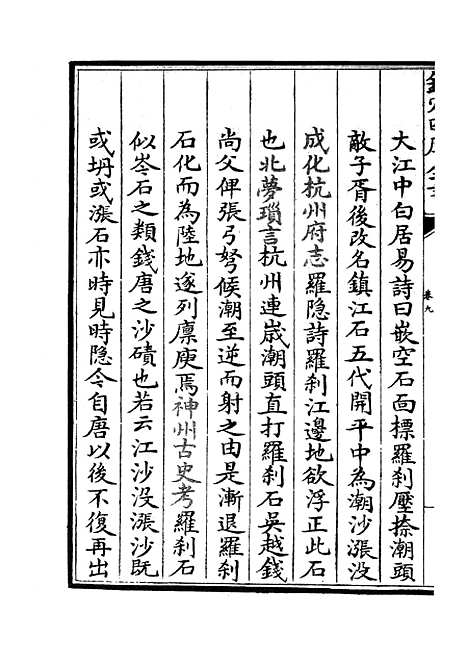 大江中白居易詩曰嵌空石面標羅刹壓捺潮頭
敵子胥後改名鎮江石五代開平中為潮沙漲没
成化杭州府志羅隐詩羅刹江邊地欲浮正此石
也北夢瑣言杭州連嵗潮頭直打羅刹石吳越錢
尚父俾張弓弩候潮至逆而射之由是漸退羅刹
石化而為陸地遂列廪庾焉神州古史考羅刹石
似岑石之類錢唐之沙磧也若云江沙没漲沙既
或坍或漲石亦時見時隐今自唐以後不復再出
卷九